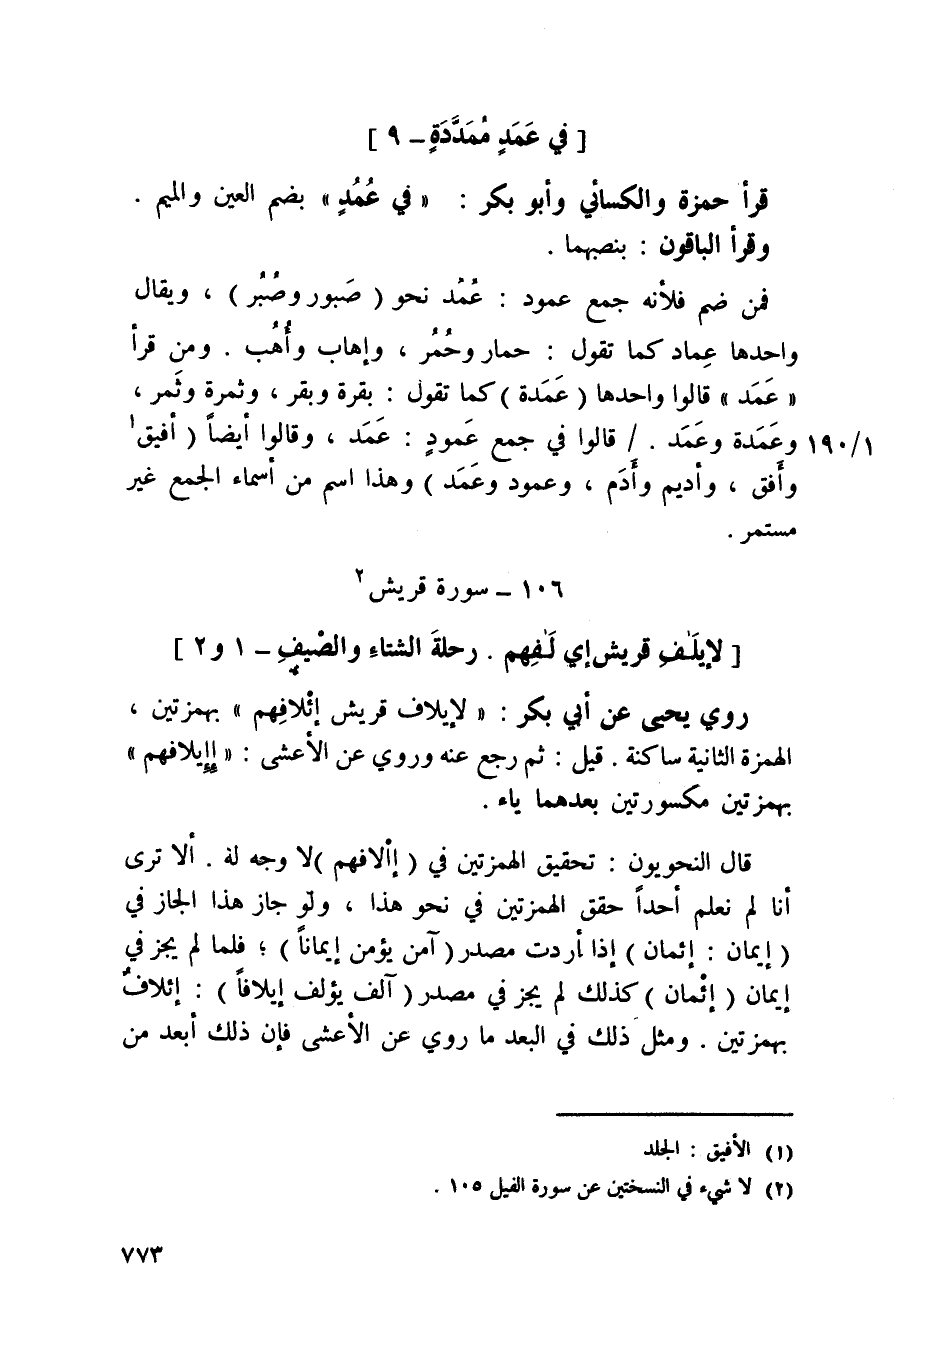 [ في عَمَدٍ مُمَدَّدَةٍ ـ ٩ ]
قرأ حمزة والكسائي وأبو بكر : « في عُمُدٍ » بضم العين والميم .
وقرأ الباقون : بنصبهما .
فمن ضم فلأنه جمع عمود : عُمُد نحو ( صَبور وصُبُر ) ، ويقال
واحدها عِماد كما تقول : حمار وحُمُر ، وإهاب وأُهُب . ومن قرأ
« عَمَد » قالوا واحدها ( عَمَدة ) كما تقول : بقرة وبقر ، وثمرة وثَمر ،
١٩٠/١ وعَمَدة وعَمَد . / قالوا في جمع عَمودٍ : عَمَد ، وقالوا أيضاً ( أفيق١
وأَفق ، وأديم وأَدَم ، وعمود وعَمَد ) وهذا اسم من أسماء الجمع غير
مستمر .
١٠٦ ـ سورة قريش٢
[ لإيلَـٰفِ قريش إي لَـٰفِهم . رحلةَ الشتاء والصْيفِ ـ ١ و ٢ ]
روي يحيى عن أبي بكر : « لإيلاف قريش إئْلافِهم » بهمزتين ،
الهمزة الثانية ساكنة . قيل : ثم رجع عنه وروي عن الأعشى : « إإيلافهم »
بهمزتين مكسورتين بعدهما ياء .
قال النحويون : تحقيق الهمزتين في ( إألافهم ) لا وجه له . ألا ترى
أنا لم نعلم أحداً حقق الهمزتين في نحو هذا ، ولو جاز هذا لجاز في
( إيمان : إئمان ) إذا أردت مصدر ( آمن يؤمن إيماناً ) ؛ فلما لم يجز في
إيمان ( إئْمان ) كذلك لم يجز في مصدر ( آلف يؤلف إيلافاً ) : إئلافٌ
بهمزتين . ومثل ذلك في البعد ما روي عن الأعشى فإن ذلك أبعد من
(١) الأفيق : الجلد
(٢) لا شيء في النسختين عن سورة الفيل ١٠٥ .
٧٧٣